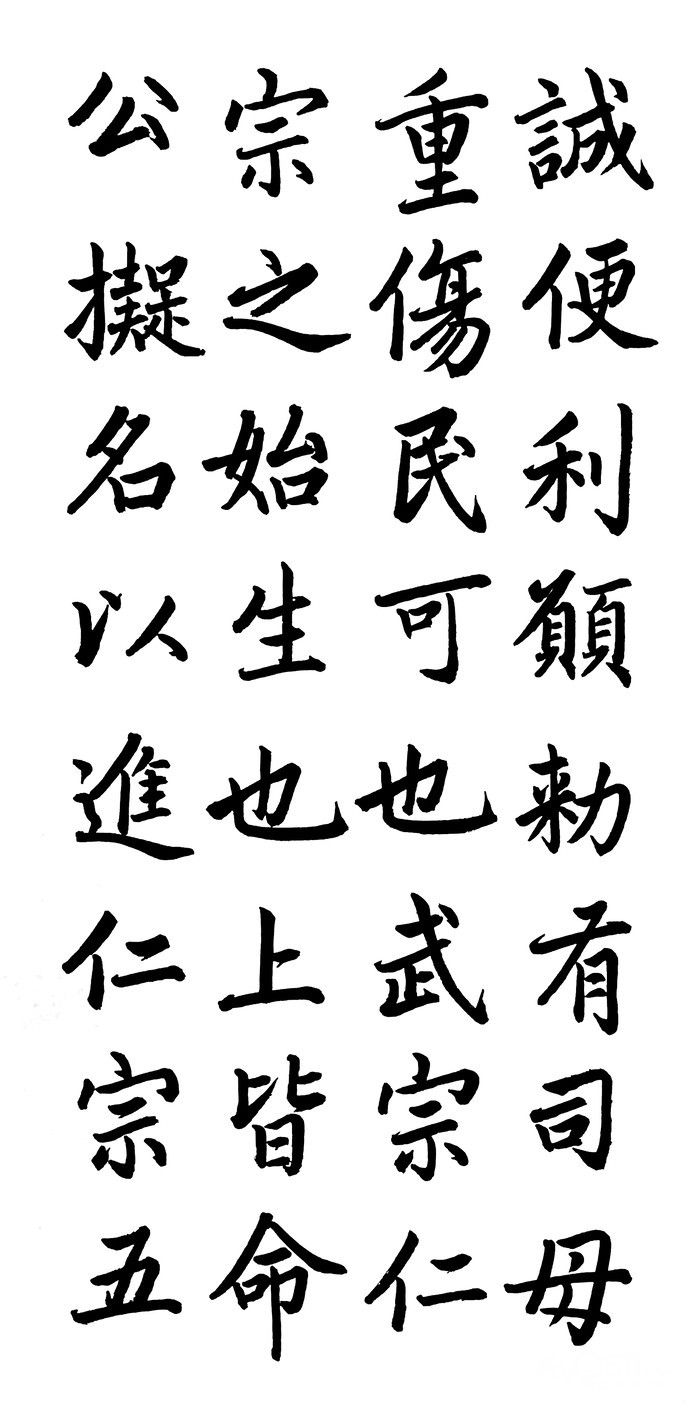 誠便利願勑有司毋
重傷民可也武宗仁
宗之始生也上皆命
公擬名以進仁宗五